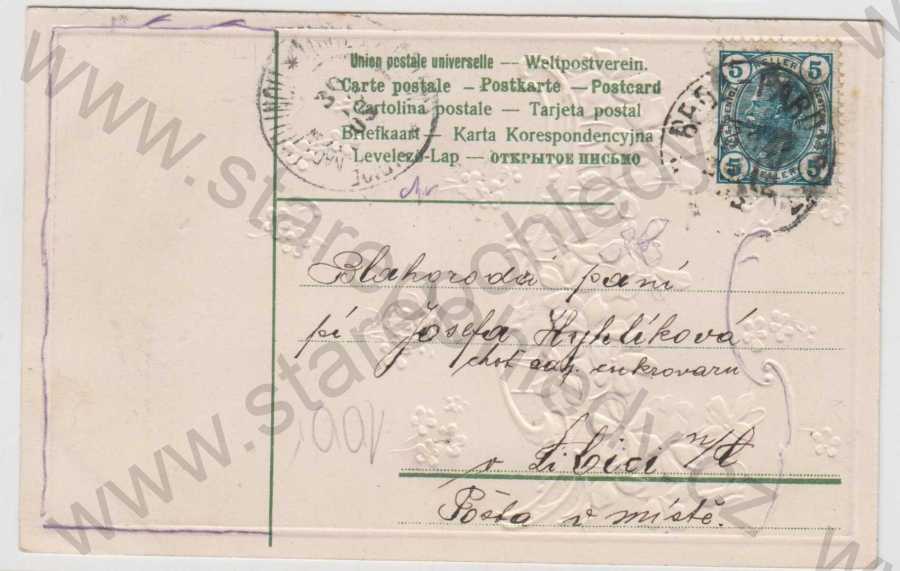 Union postale universelle — Weltpostverein.
Carte postale — Postkarte — Postcard
Cartolina postale — Tarjeta postal
Briefkaart — Karta Korespondencyjna
Levelező-Lap — ОТКРЫТОЕ ПИСЬМО
5 5
5 5
HELLER
Blahorodá paní
pí Josefa Hyhlíková
choť adj. cukrovaru
v Libici n/C
Pošta v místě.
1001
www.starepohledy.cz